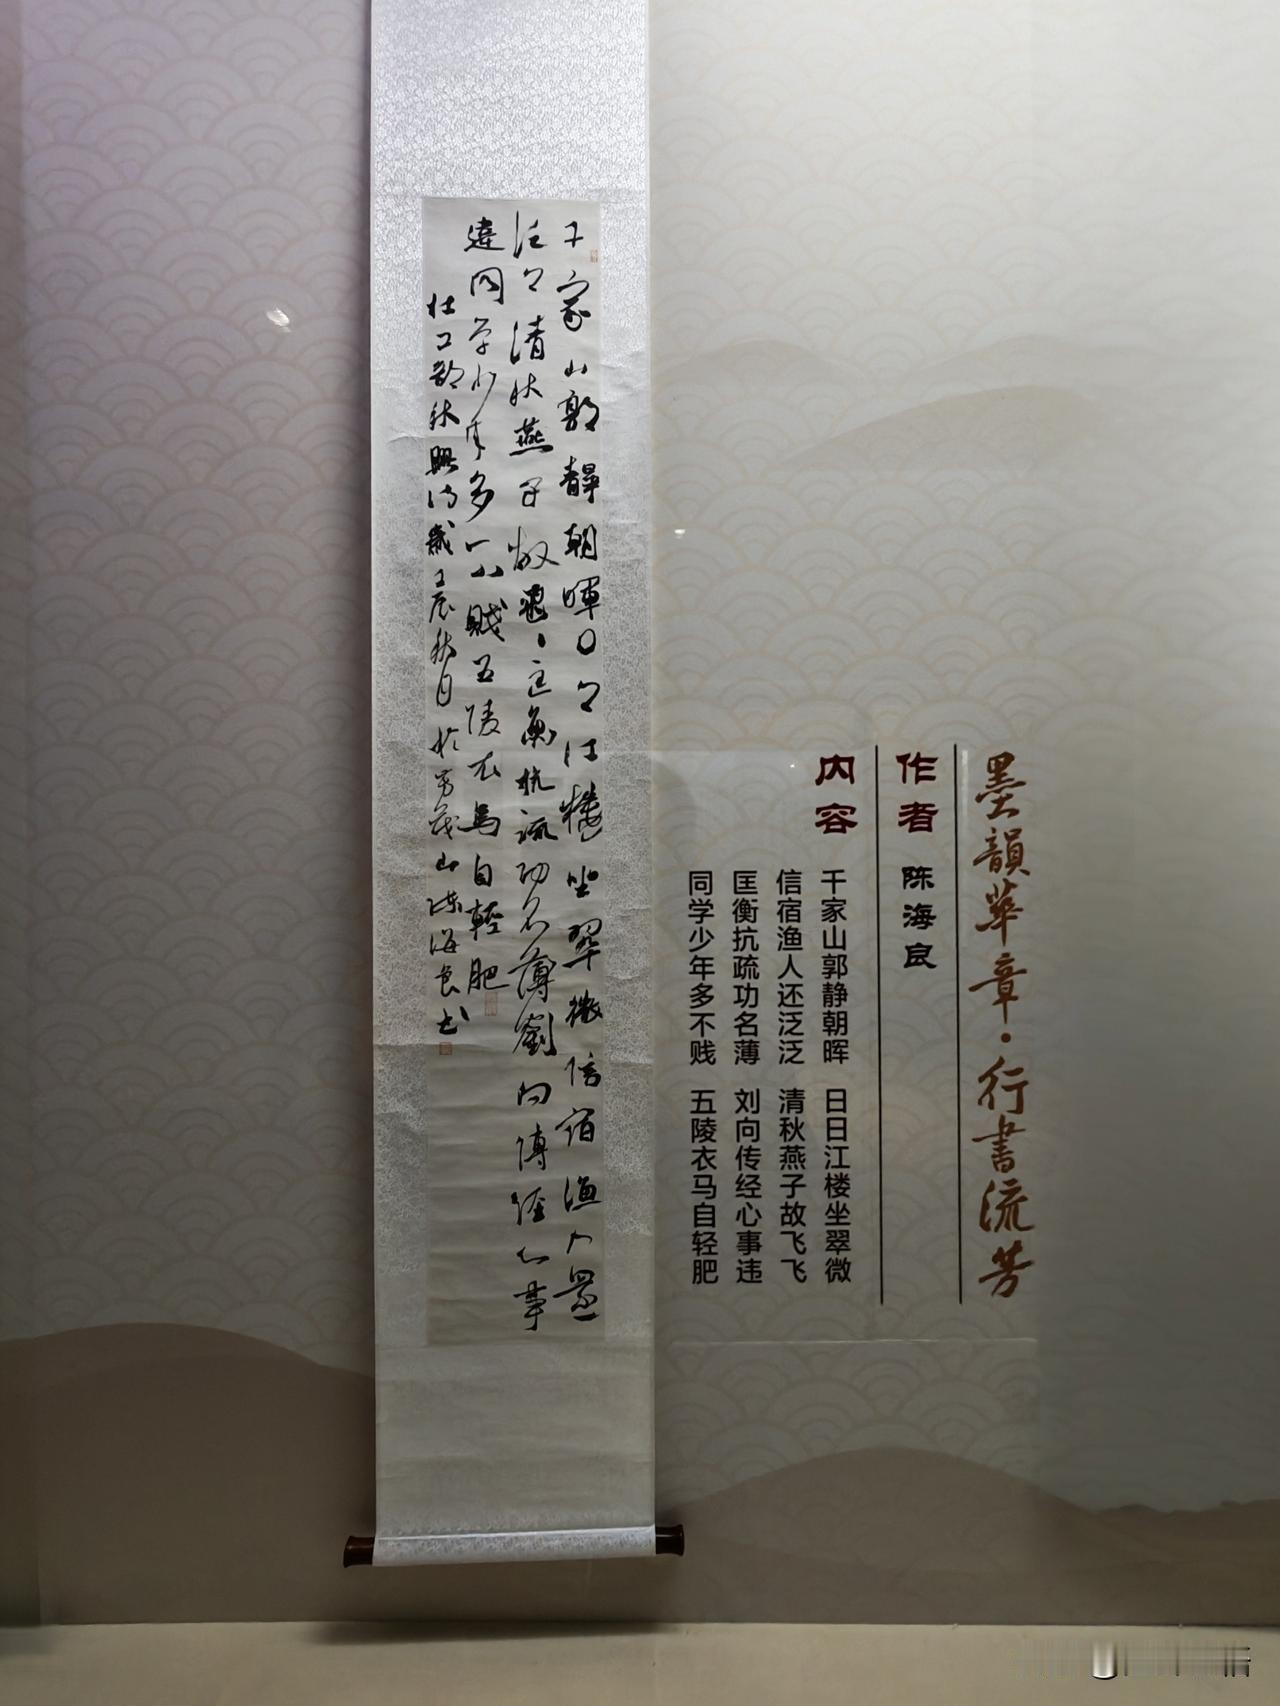 墨韻華章·行書流芳
作者 陈海良
内容
千家山郭静朝晖 日日江楼坐翠微
信宿渔人还泛泛 清秋燕子故飞飞
匡衡抗疏功名薄 刘向传经心事违
同学少年多不贱 五陵衣马自轻肥
千家山郭靜朝暉日々江樓坐翠微信宿漁人還
泛々清秋燕子故飛々匡衡抗疏功名薄劉向傳經心事
違同學少年多不賤五陵衣馬自輕肥
杜工部秋興詩歲壬辰秋月於芳茂山陳海良書